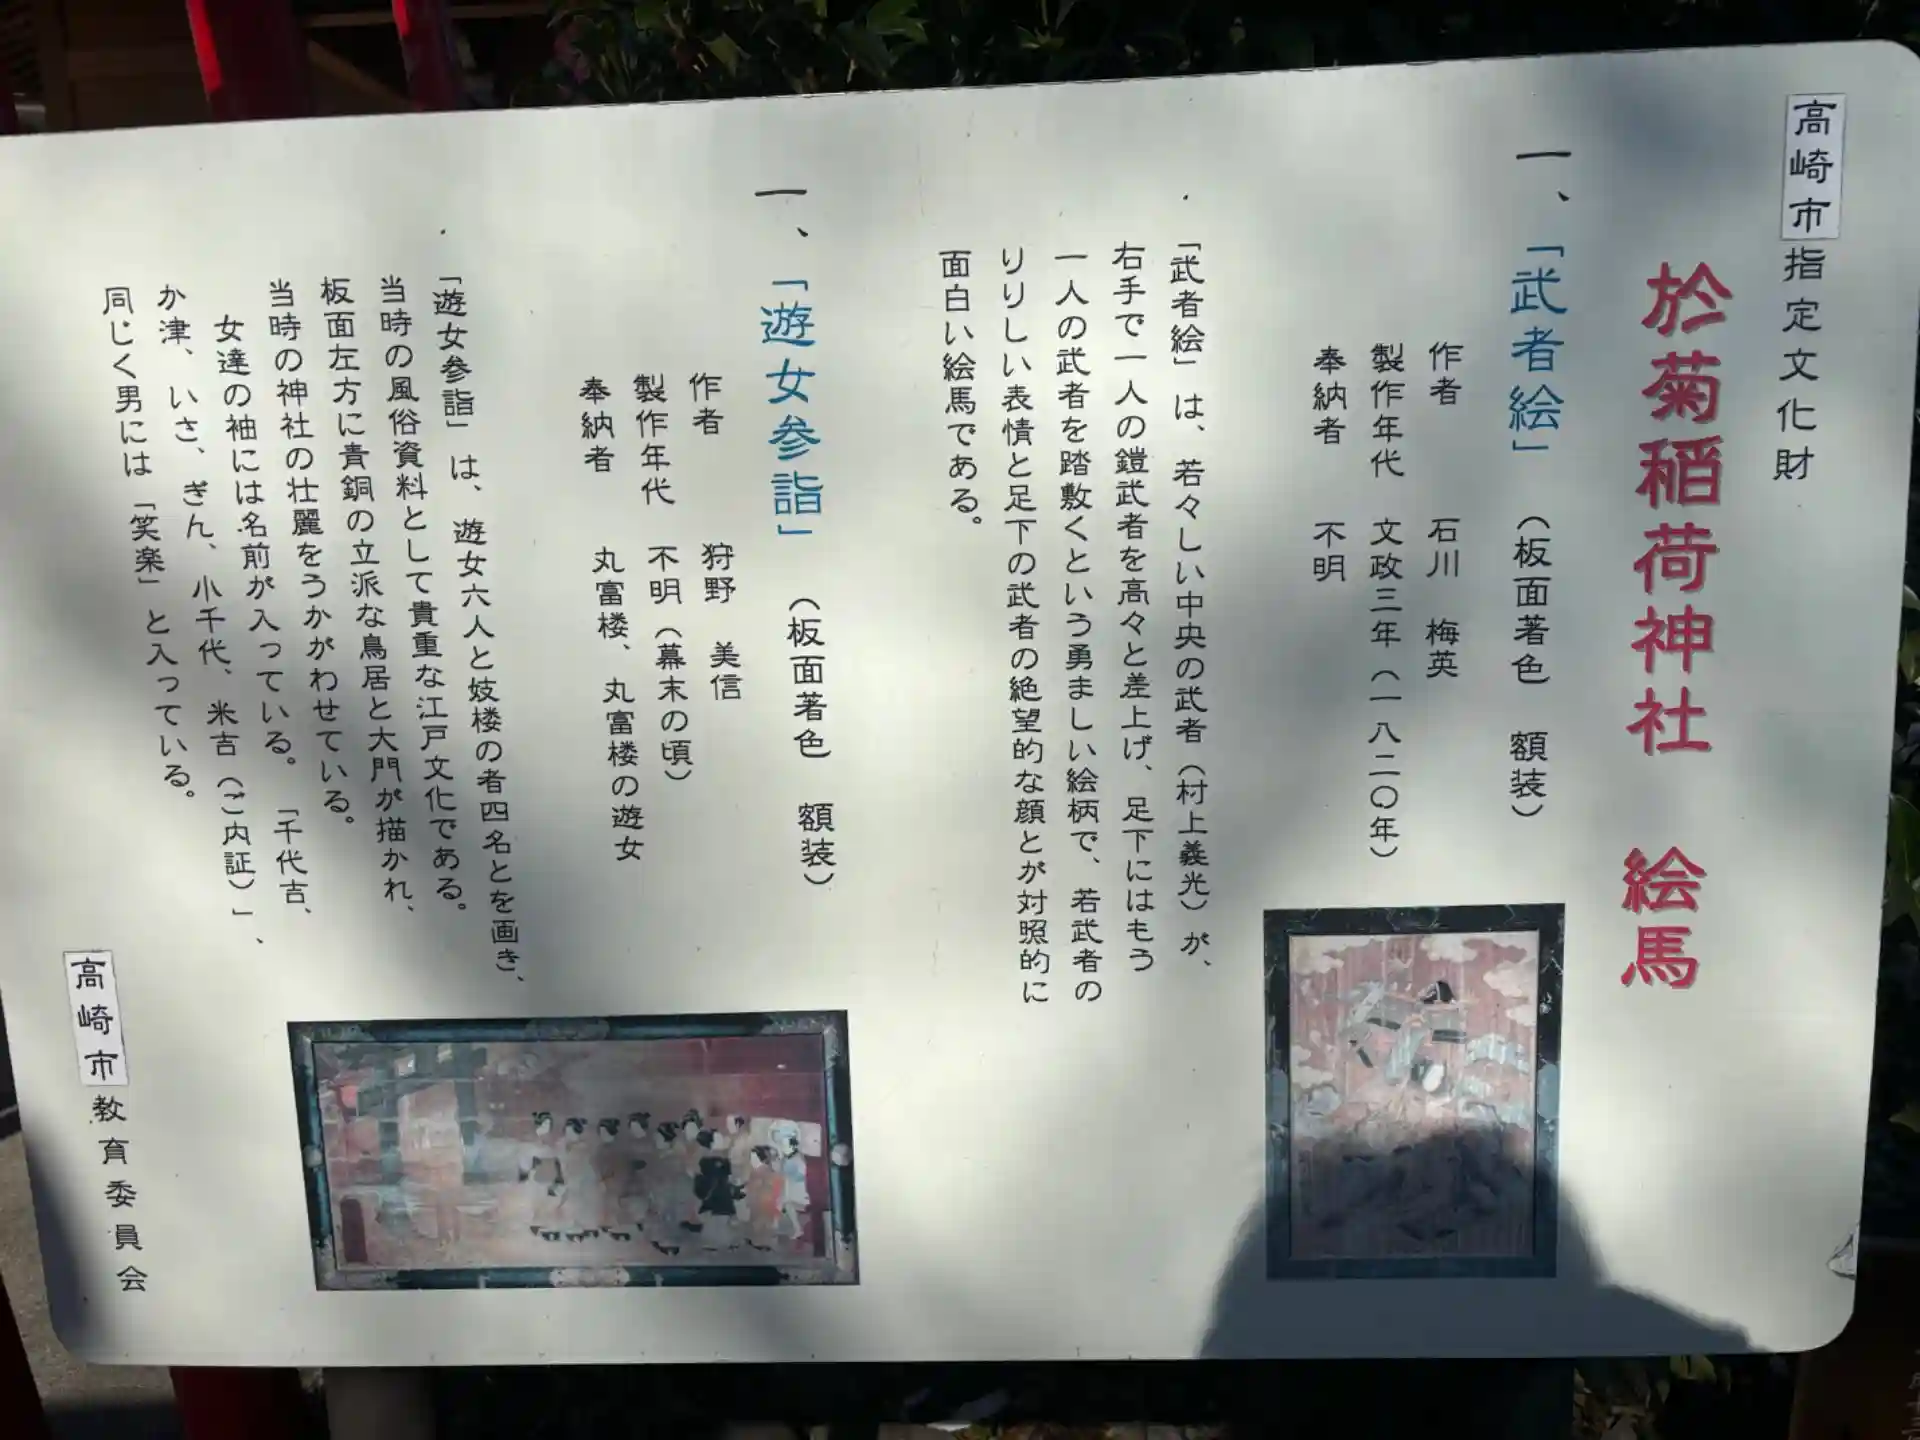 高崎市指定文化財
於菊稲荷神社 絵馬
一、「武者絵」(板面著色 額装)
作者 石川 梅英
製作年代 文政三年(一八二〇年)
奉納者 不明
「武者絵」は、若々しい中央の武者(村上義光)が、
右手で一人の鎧武者を高々と差上げ、足下にはもう
一人の武者を踏敷くという勇ましい絵柄で、若武者の
りりしい表情と足下の武者の絶望的な顔とが対照的に
面白い絵馬である。
一、「遊女参詣」(板面著色 額装)
作者 狩野 美信
製作年代 不明(幕末の頃)
奉納者 丸富楼、丸富楼の遊女
「遊女参詣」は、遊女六人と妓楼の者四名とを画き、
当時の風俗資料として貴重な江戸文化である。
板面左方に青銅の立派な鳥居と大門が描かれ、
当時の神社の壮麗をうかがわせている。
女達の袖には名前が入っている。「千代吉、
か津、いさ、ぎん、小千代、米吉(ご内証)」、
同じく男には「笑楽」と入っている。
高崎市教育委員会